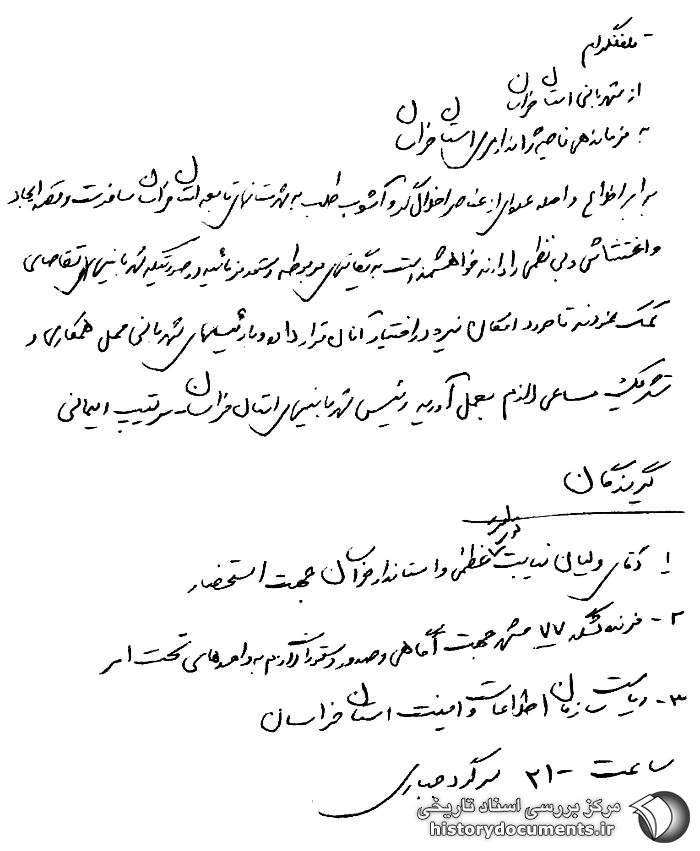 - تلفنگرام
از شهربانی استان خراسان
به فرماندهی ناحیه ژاندارمری استان خراسان
بنا بر اطلاع واصله عده‌ای از عناصر اخلال‌گر و آشوب طلب به شهرستانهای تابعه استان خراسان مسافرت و قصد ایجاد
و اغتشاش و بی نظمی را دارند خواهشمند است به یگانهای مربوطه دستور فرمائید در صورتیکه شهربانیهای تقاضای
کمک نمودند تا حدود امکان نیرو در اختیار آنان قرار داده و با رئیسهای شهربانی محل همکاری و
تشریک مساعی لازم بعمل آورید رئیس شهربانیهای استان خراسان - سرتیپ ایمانی
گیرندگان
۱ آقای ولیان نیابت تولیت عظمی و استاندار خراسان جهت استحضار
۲- فرمانده لشکر ۷۷ مشهد جهت آگاهی و صدور دستورات لازم به واحدهای تحت امر
۳- ریاست سازمان اطلاعات و امنیت استان خراسان
ساعت ۲۱۰۰ سرگرد جباری
مرکز بررسی اسناد تاریخی
historydocuments.ir